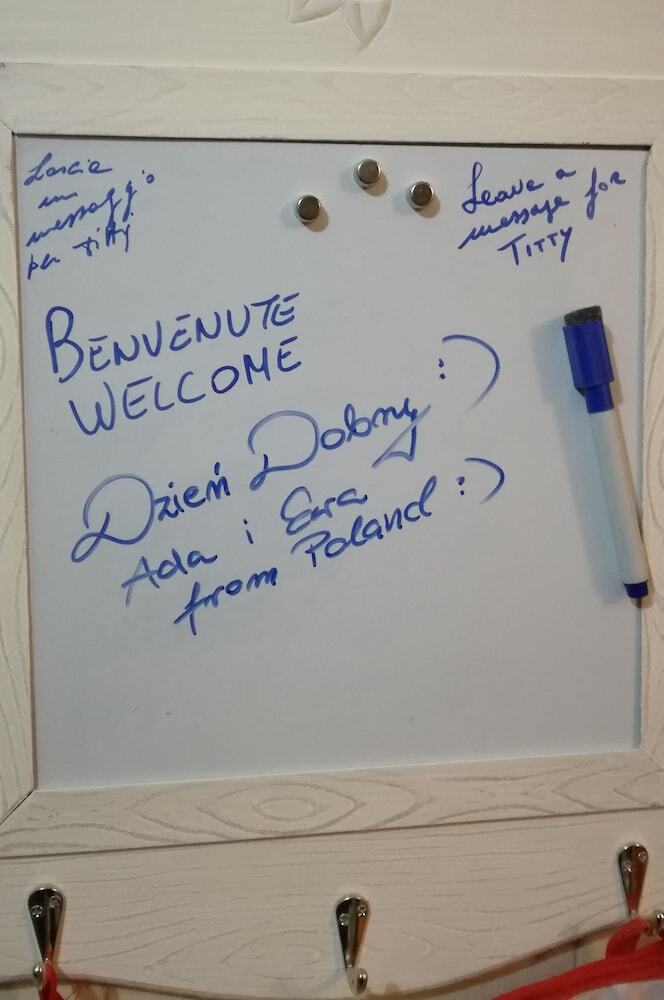 Lascia
un
messaggio
per Titty
Leave a
message for
TITTY
BENVENUTE
WELCOME
Dzień Dobry :)
Ada i Ewa
from Poland :)